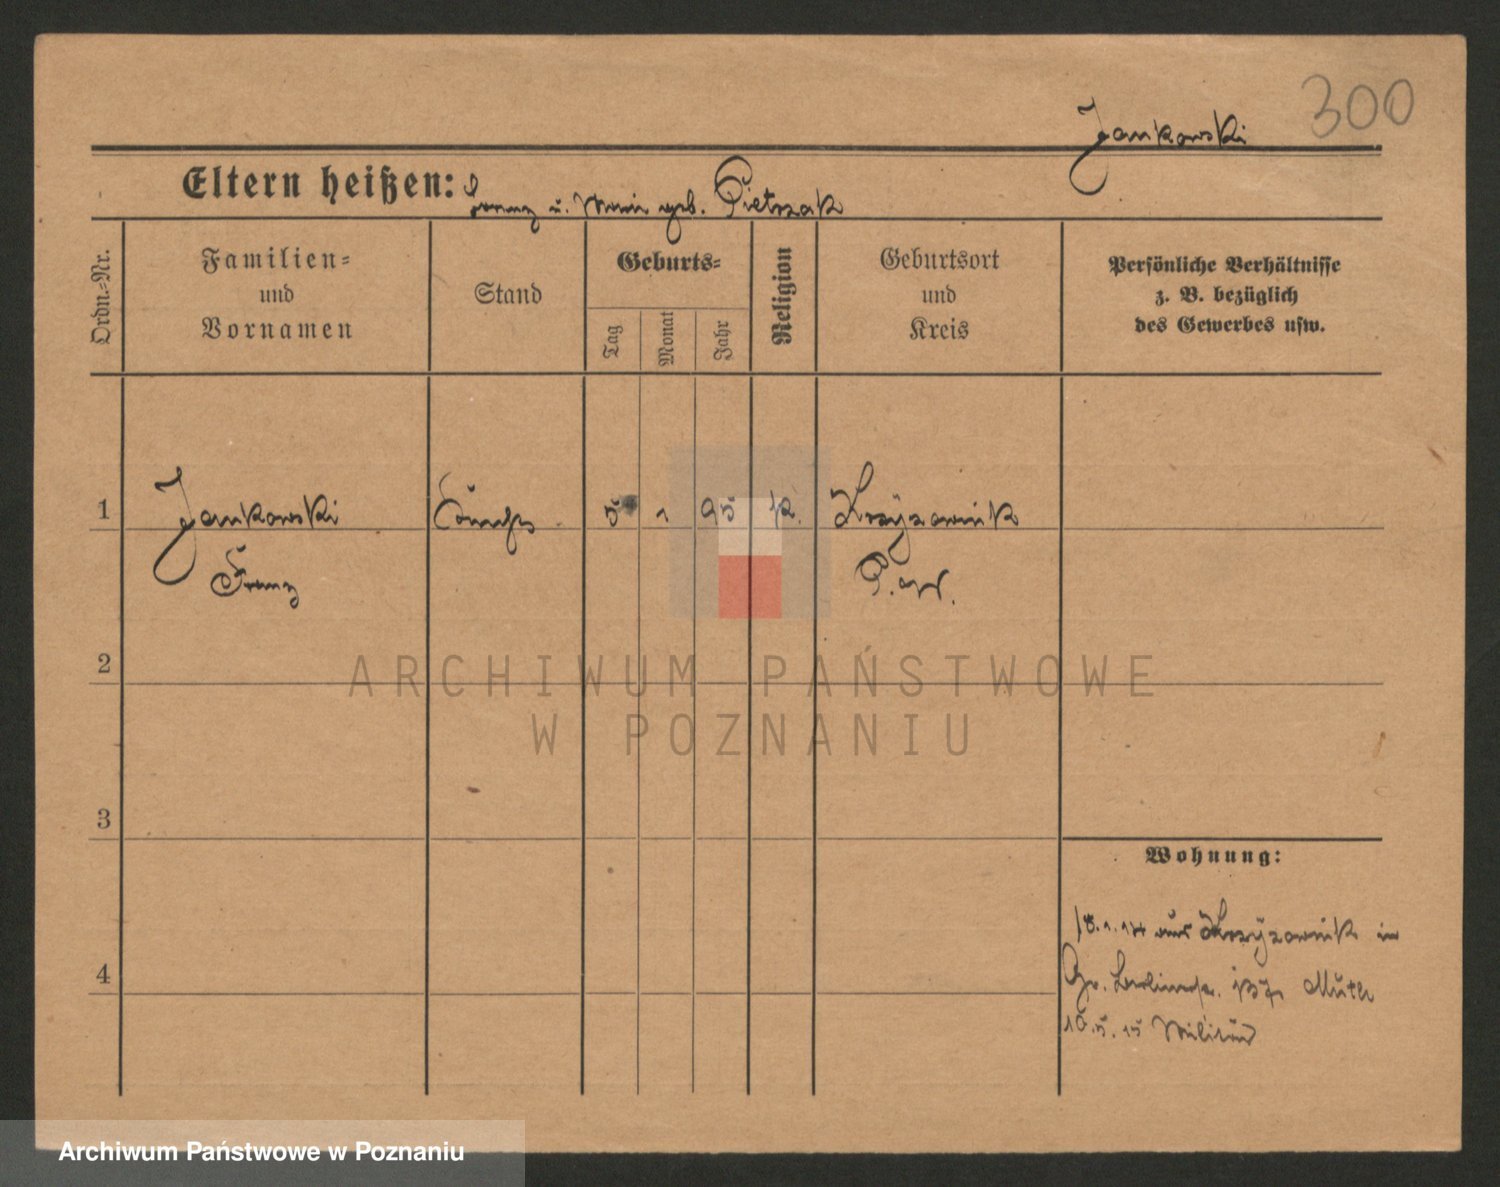 300
Jankowski
Eltern heißen: Franz u. Marie geb. Pietrzak
Ordn.-Nr.
Familien-
und
Vornamen
Stand
Geburts-
Tag
Monat
Jahr
Religion
Geburtsort
und
Kreis
Persönliche Verhältnisse
z. B. bezüglich
des Gewerbes usw.
1
Jankowski
5
95
K.
Krzyżownik
Franz
P. W.
2
ARCHIWUM PAŃSTWOWE
W POZNANIU
3
Wohnung:
18.1.14 aus Krzyżownik in
4
Gr. Berlinerstr. Muth
15 Militär
Archiwum Państwowe w Poznaniu